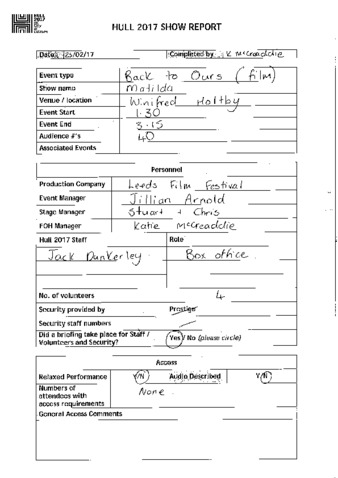 HULL 2017
HULL 2017 SHOW REPORT
Date: 25/02/17 Completed by: K McCreaddie
Event type Back to Ours (film)
Show name Matilda
Venue / location Winifred Holtby
Event Start 1:30
Event End 3:15
Audience #'s 40
Associated Events
Personnel
Production Company Leeds Film Festival
Event Manager Jillian Arnold
Stage Manager Stuart + Chris
FOH Manager Katie McCreaddie
Hull 2017 Staff Role
Jack Dunkerley Box office
No. of volunteers 4
Security provided by Prestige
Security staff numbers
Did a briefing take place for Staff / Volunteers and Security? Yes / No (please circle)
Access
Relaxed Performance Y/N Audio Described Y/N
Numbers of
attendees with
access requirements None
General Access Comments